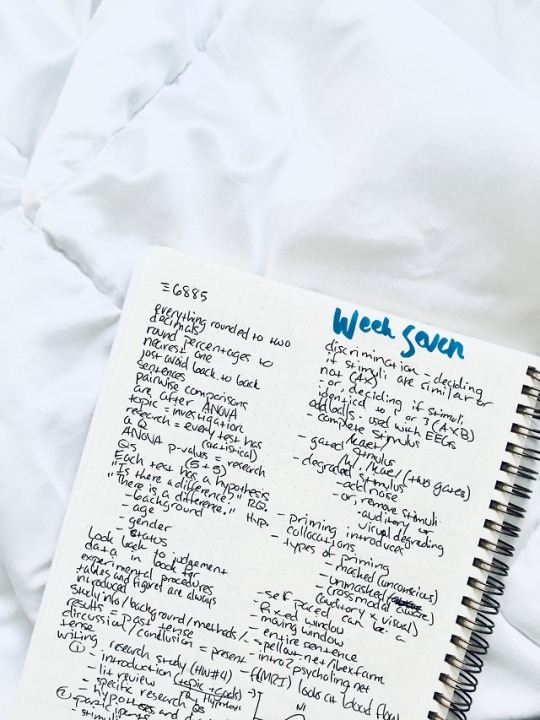 ≡6885
everything rounded to two
decimals
round percentages to
nearest one
just avoid back to back
sentences
pairwise comparisons
are after ANOVA
topic = investigation
research = every test has
a Q (statistical)
ANOVA p-values = research
Qs (5+5)
Each test has a hypothesis
"Is there a difference?" RQ.
"There is a difference." Hyp.
- background
- age
- gender
- status
Look back to judgement
data in book for
experimental procedures
tables and figures are always
introduced
study info/background/methods/
results = past tense
discussion/conclusion = present
tense
writing
① research study (HW#4)
- introduction (topic → goals)
- lit review
- specific research Qs
- hypotheses and
② participants
Week Seven
discrimination - deciding
if stimuli are similar or
not (AX)
- or, deciding if stimuli
identical to 1 or 3 (AXB)
oddballs - used with EEGs
- complete stimulus
- gated stimulus
(two gates)
- degraded stimulus
- add noise
- or, remove stimuli
- auditory or
visual degrading
- priming introduces
collocations
- types of priming
- masked (unconscious)
- unmasked
- cross modal
(auditory x visual)
- self paced can be a
- fixed window
- moving window
- entire sentence
- intro2psycholing.net
- f(MRI) looks at blood flow
N1